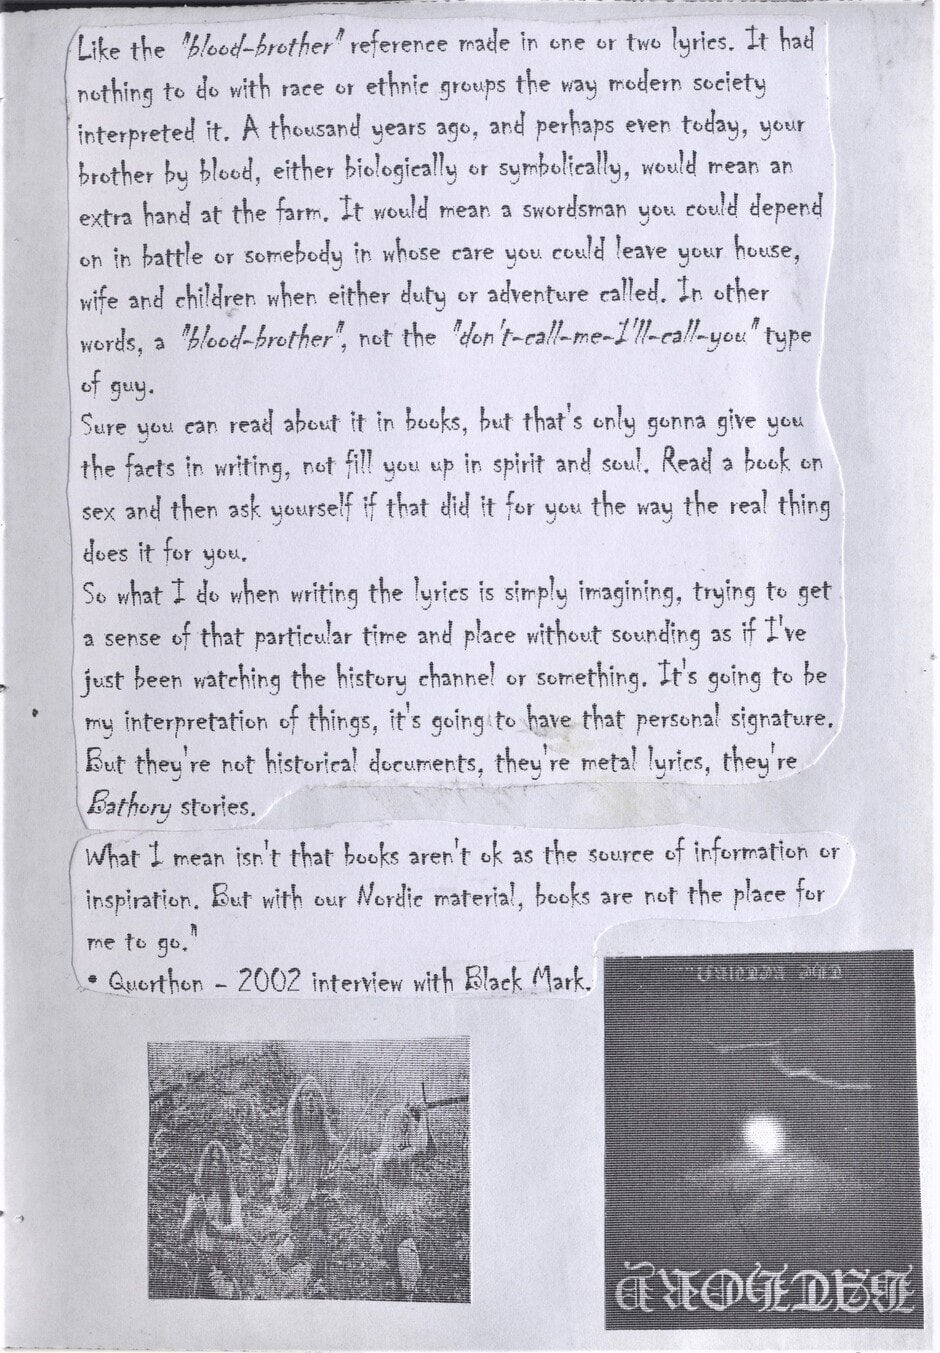 Like the "blood-brother" reference made in one or two lyrics. It had
nothing to do with race or ethnic groups the way modern society
interpreted it. A thousand years ago, and perhaps even today, your
brother by blood, either biologically or symbolically, would mean an
extra hand at the farm. It would mean a swordsman you could depend
on in battle or somebody in whose care you could leave your house,
wife and children when either duty or adventure called. In other
words, a "blood-brother", not the "don't-call-me-I'll-call-you" type
of guy.
Sure you can read about it in books, but that's only gonna give you
the facts in writing, not fill you up in spirit and soul. Read a book on
sex and then ask yourself if that did it for you the way the real thing
does it for you.
So what I do when writing the lyrics is simply imagining, trying to get
a sense of that particular time and place without sounding as if I've
just been watching the history channel or something. It's going to be
my interpretation of things, it's going to have that personal signature.
But they're not historical documents, they're metal lyrics, they're
Bathory stories.
What I mean isn't that books aren't ok as the source of information or
inspiration. But with our Nordic material, books are not the place for
me to go."
• Quorthon - 2002 interview with Black Mark.
BATHORY